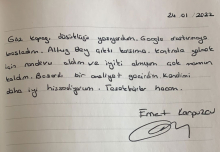 24.01.2022
Göz kapağı düşüklüğü yaşıyordum. Google araştırmaya
başladım. Altuğ Bey çıktı karşıma. Kontrole günlük
için randevu aldım ve iyiki almışım. Çok memnun
kaldım. Başarılı bir ameliyat geçirdim. Kendimi
daha iyi hissediyorum. Teşekkürler hocam.
Emet